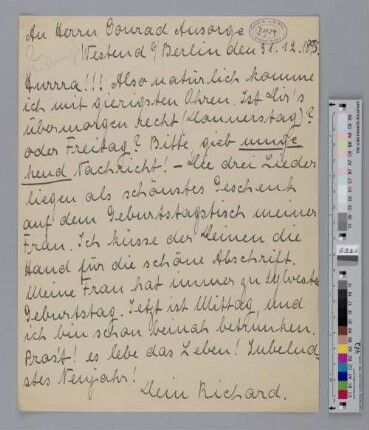 An Herrn Conrad Ansorge
Westend b/Berlin den 31.12.1895
Hurrra!!! Also natürlich komme
ich mit gierigsten Ohren. Ist Dir's
übermorgen recht (Donnerstag)?
oder Freitag? Bitte, gieb umge-
hend Nachricht! – Die drei Lieder
liegen als schönstes Geschenk
auf dem Geburtstagstisch meiner
Frau. Ich küsse der Deinen die
Hand für die schöne Abschrift.
Meine Frau hat immer zu Sylvester
Geburtstag. Jetzt ist Mittag, und
ich bin schon beinah betrunken.
Prost! es lebe das Leben! Jubelnd-
stes Neujahr!
Dein Richard.